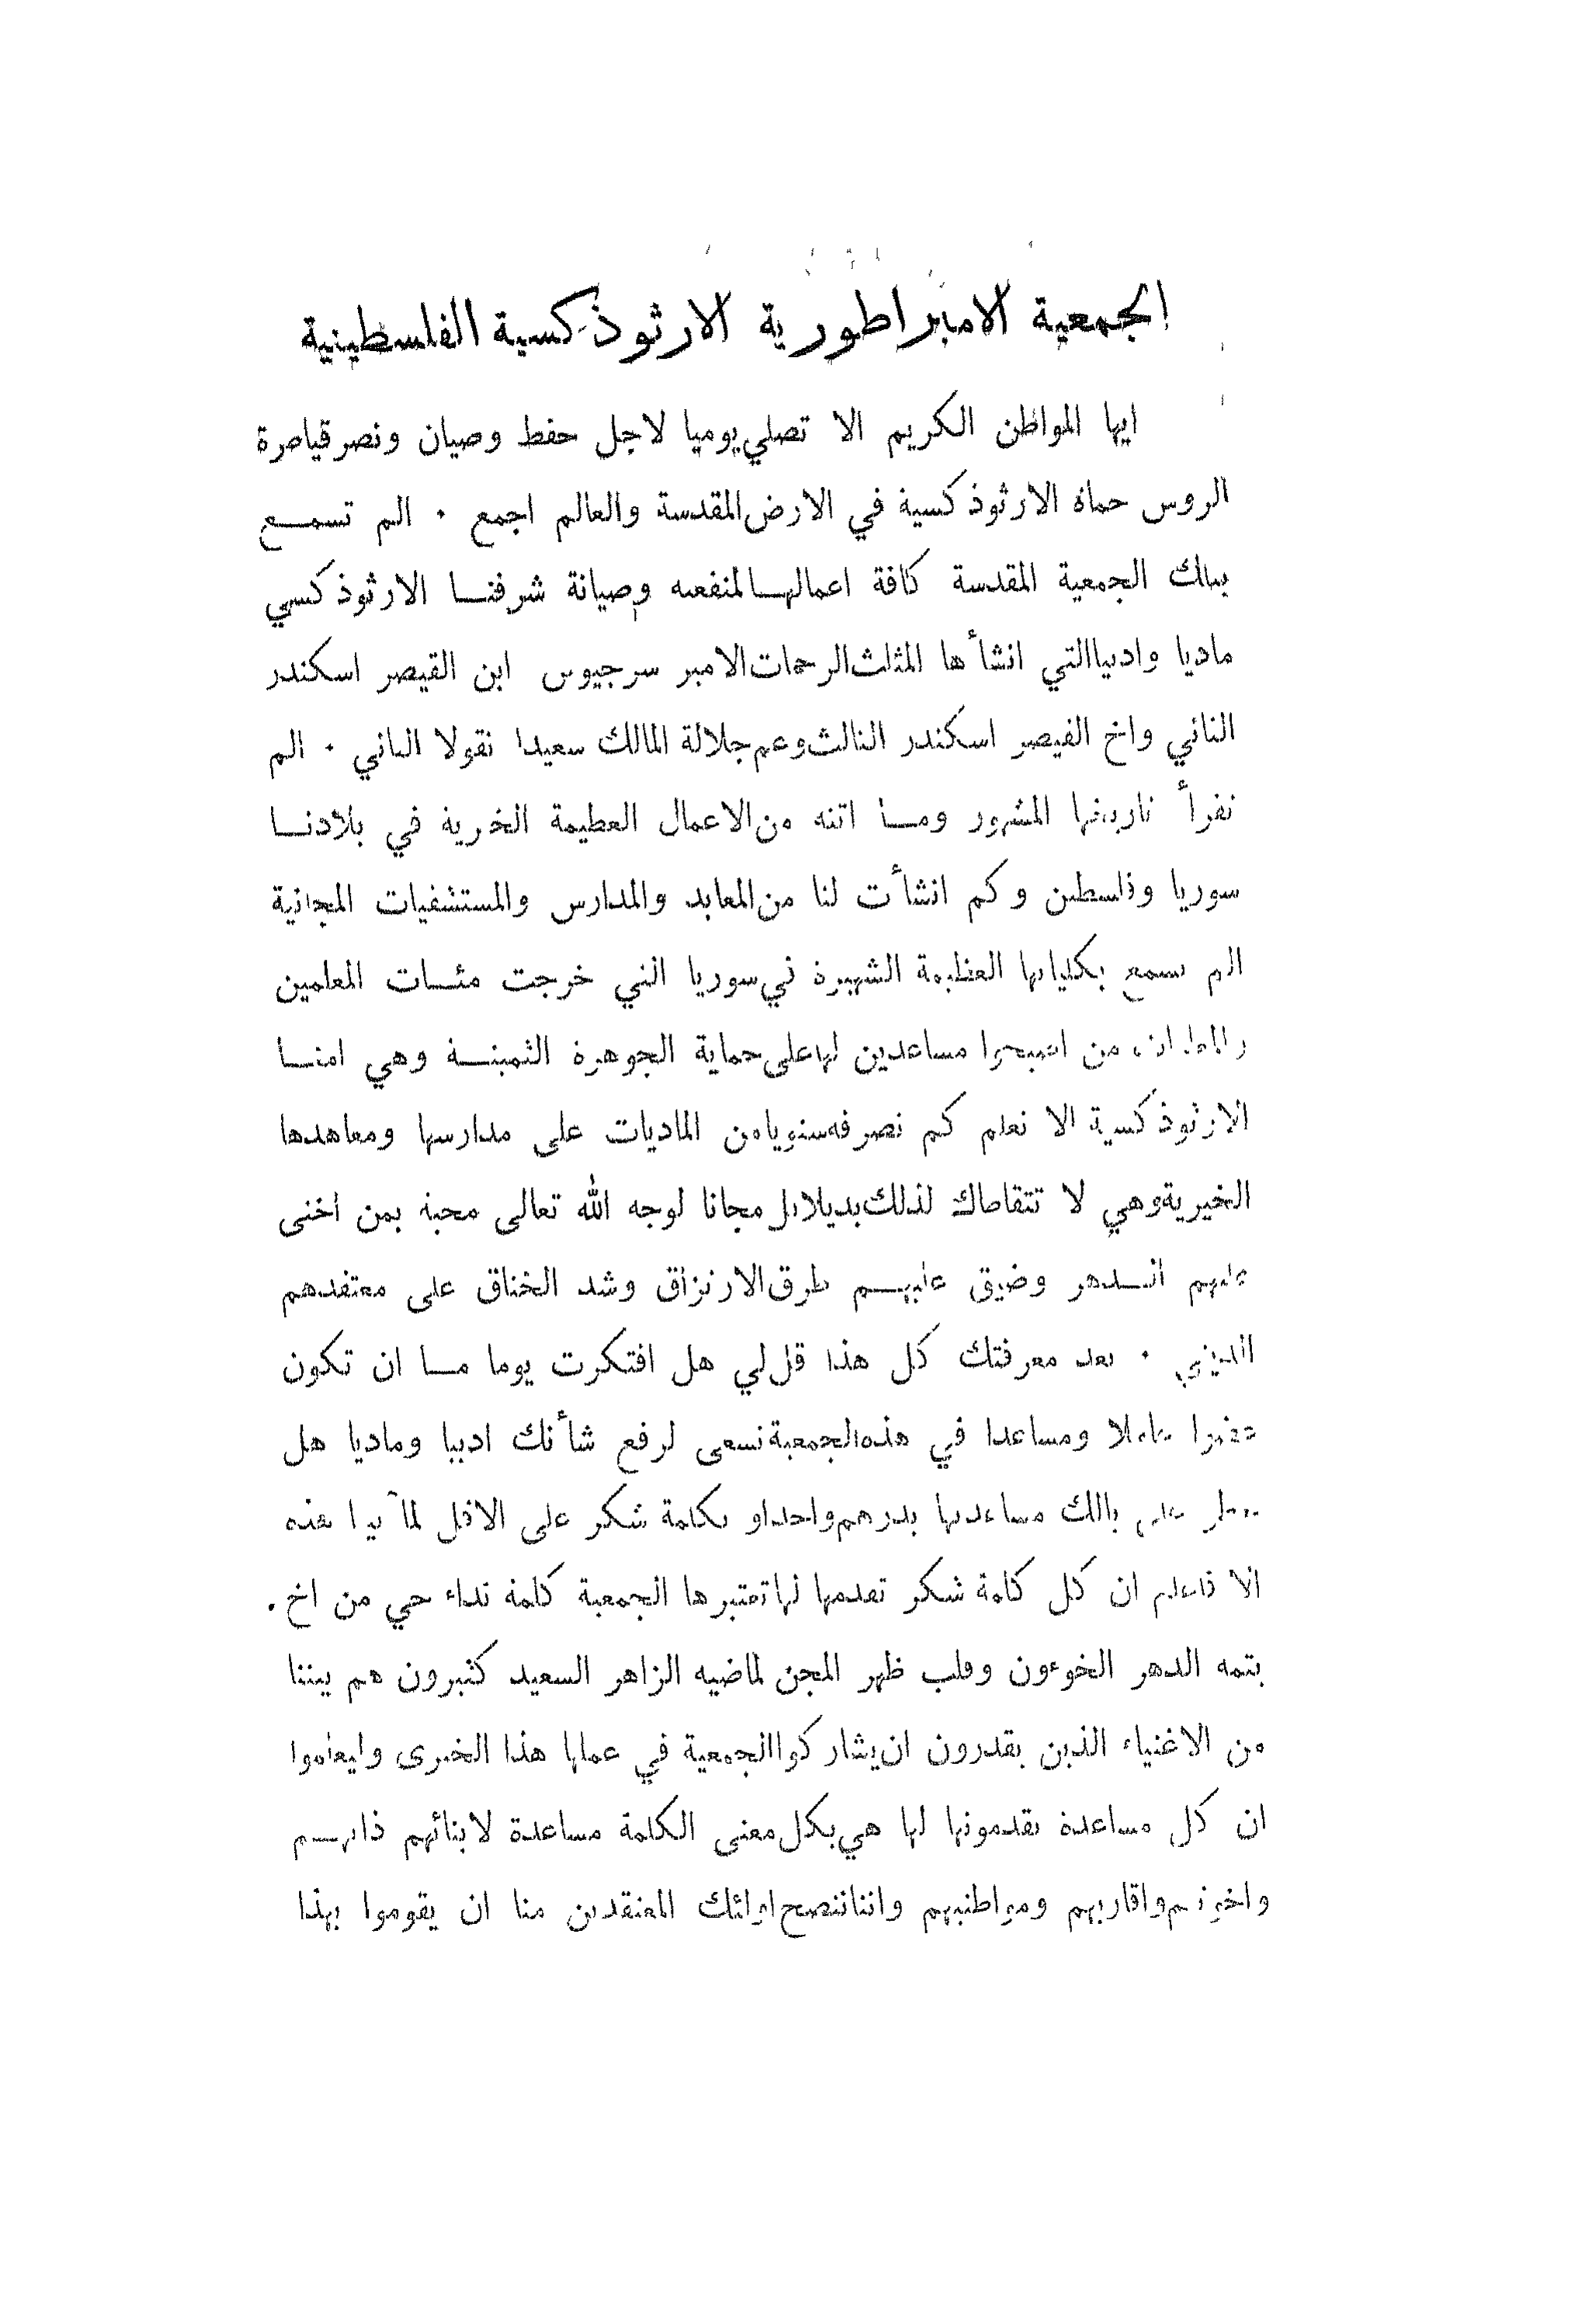 الجمعية الامبراطورية الارثوذكسية الفلسطينية
ايها المواطن الكريم الا تصلي يوميا لاجل حفظ وصيان ونصر قياصرة
الروس حماة الارثوذكسية في الارض المقدسة والعالم اجمع ٠ الم تسمع
بتلك الجمعية المقدسة كافة اعمالها لمنفعه وصيانة شرفنا الارثوذكسي
ماديا وادبيا التي انشأها المثلث الرحمات الامير سرجيوس ابن القيصر اسكندر
الثاني واخ القيصر اسكندر الثالث وعم جلالة المالك سعيدا نقولا الثاني ٠ الم
تقرأ تاريخها المشهور وما اتته من الاعمال العظيمة الخيرية في بلادنا
سوريا وفلسطين وكم انشأت لنا من المعابد والمدارس والمستشفيات المجانية
الم تسمع بكلياتها العظيمة الشهيرة في سوريا التي خرجت مئات المعلمين
من اصبحوا مساعدين لها على حماية الجوهرة الثمينة وهي امنا
الارثوذكسية الا تعلم كم تصرفه سنويا من الماديات على مدارسها ومعاهدها
الخيرية وهي لا تتقاضاك لذلك بديلا بل مجانا لوجه الله تعالى محبة بمن اخنى
عليهم الدهر وضيق عليهم طرق الارتزاق وشد الخناق على معتقدهم
الديني ٠ بعد معرفتك كل هذا قل لي هل افتكرت يوما ما ان تكون
عضوا عاملا ومساعدا في هذه الجمعية تسعى لرفع شأنك ادبيا وماديا هل
بالك مساعدتها بدرهم واحد او بكلمة شكر على الاقل هذه
الا فاعلم ان كل كلمة شكر تقدمها لها تعتبرها الجمعية كلمة نداء حي من اخ.
يتمه الدهر الخوءون وقلب ظهر المجن لماضيه الزاهر السعيد كثيرون هم بيننا
من الاغنياء الذين يقدرون ان يشاركوا الجمعية في عملها هذا الخيرى وليعلموا
ان كل مساعدة يقدمونها لها هي بكل معنى الكلمة مساعدة لابنائهم ذاتهم
واخوتهم واقاربهم ومواطنيهم واننا ننصح اولئك المنتقدين منا ان يقوموا بهذا